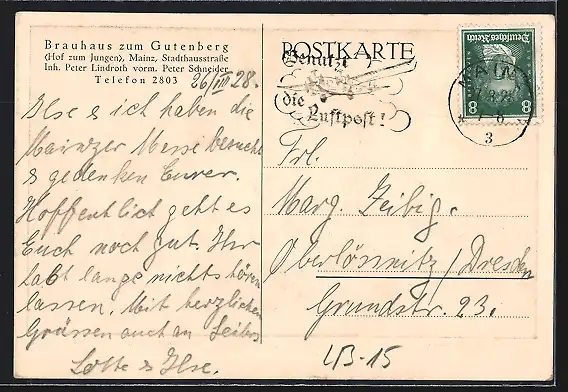 Brauhaus zum Gutenberg
(Hof zum Jungen), Mainz, Stadthausstraße
Inh. Peter Lindroth vorm. Peter Schneider
Telefon 2803
26/VIII 28.
Ilse & ich haben die
Mainzer Messe besucht
& gedenken Eurer.
Hoffentlich geht es
Euch noch gut. Ihr
laßt lange nichts hören
lassen. Mit herzlichen
Grüssen auch an
Lotte & Ilse.
POSTKARTE
Benutzt
die
Luftpost!
Deutsches Reich
8 8
MAINZ
3
Frl.
Marg. Zeibig.
Oberlössnitz/Dresden
Grundstr. 23.
LB-15